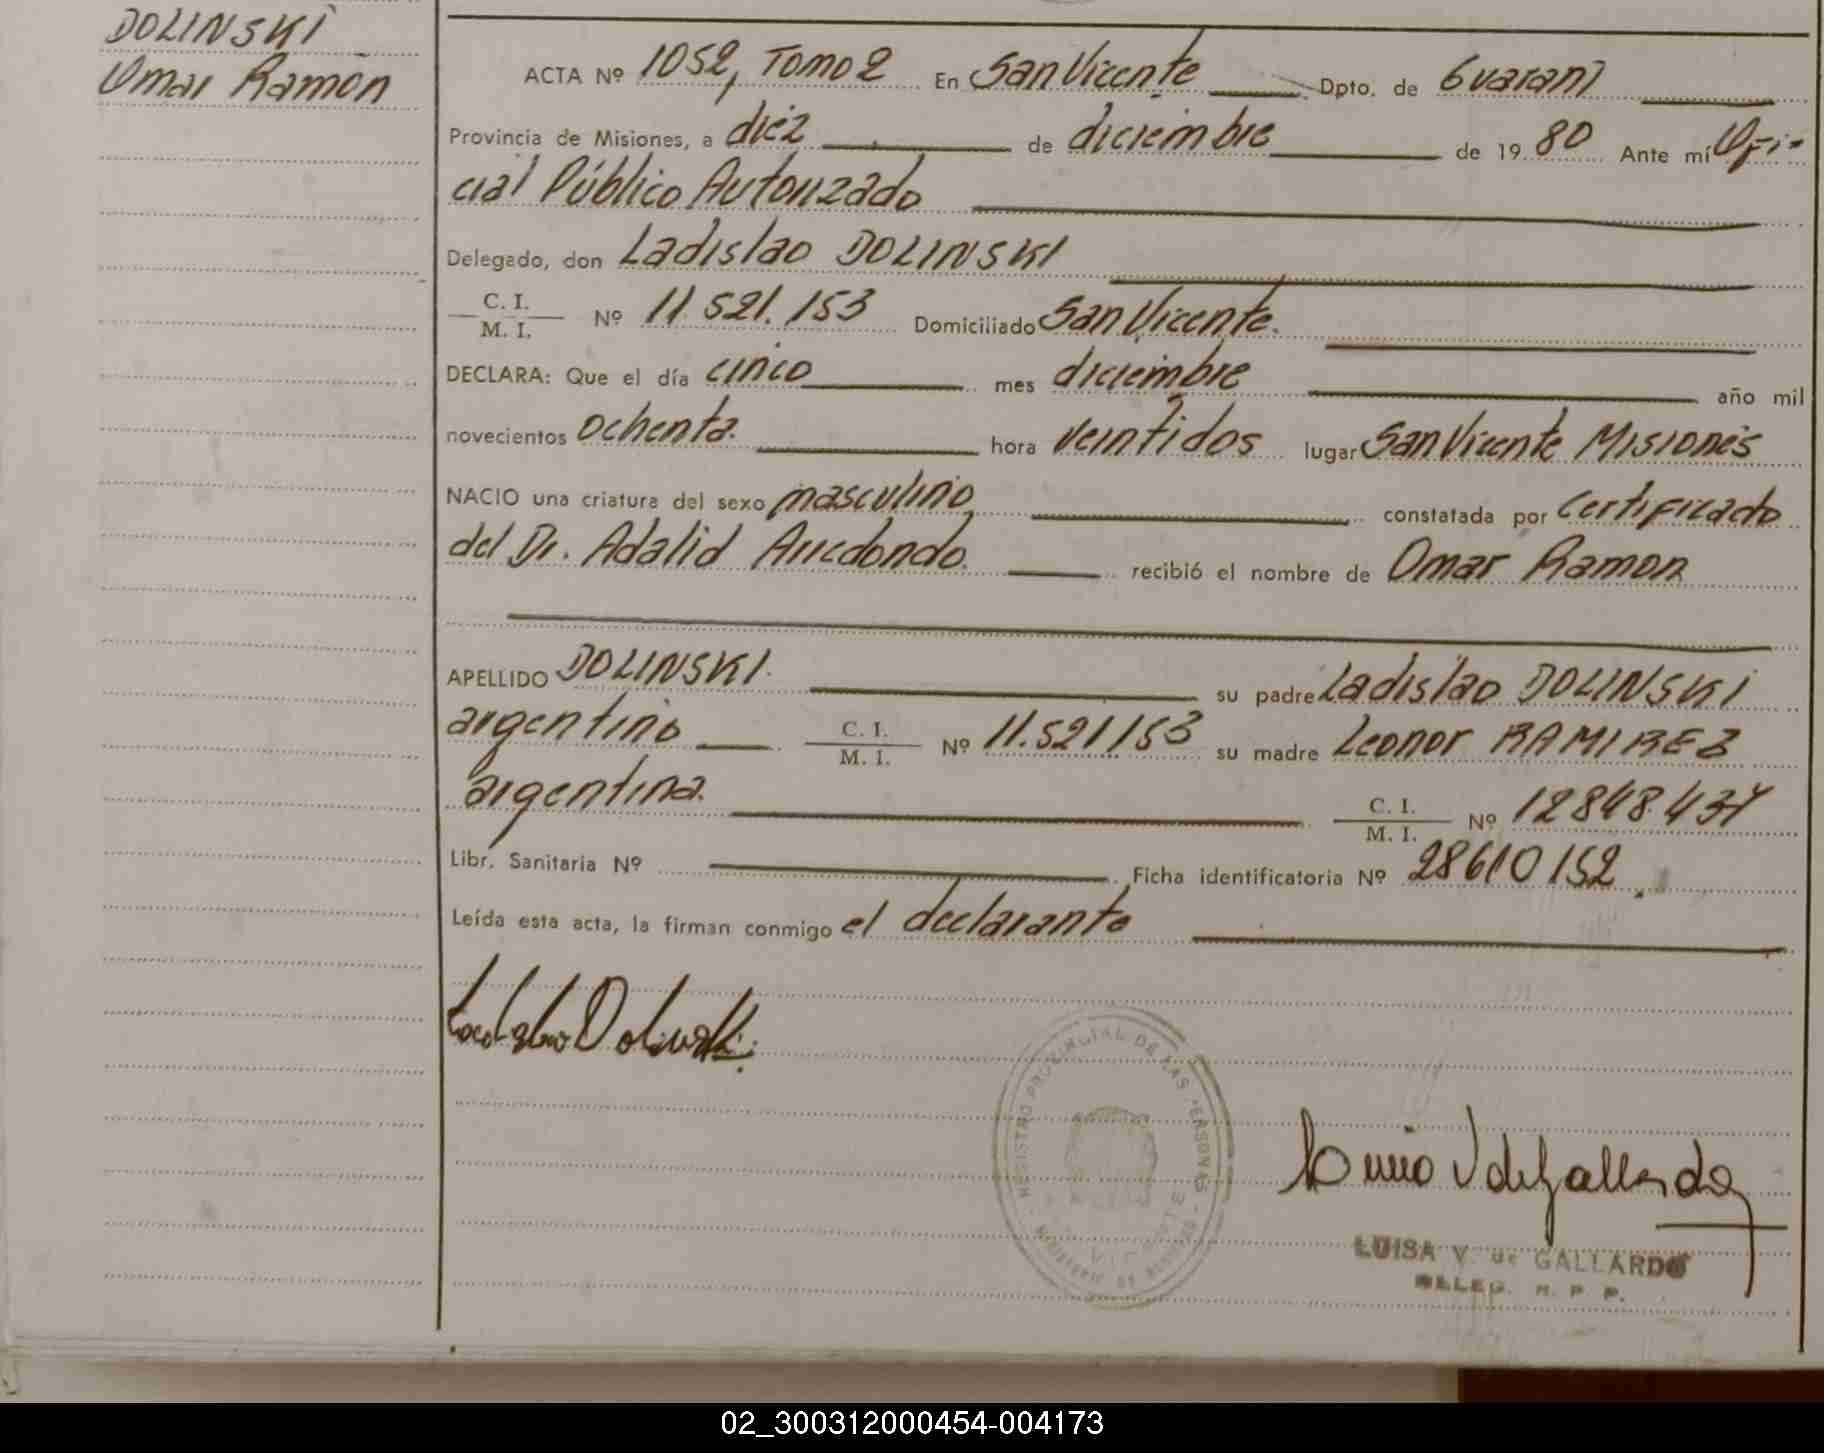 DOLINSKI
Omar Ramón
ACTA Nº 1052, Tomo 2 En San Vicente Dpto. de Guaraní
Provincia de Misiones, a diez de diciembre de 1980 Ante mí Ofi-
cial Público Autorizado
Delegado, don Ladislao DOLINSKI
C. I.
M. I. Nº 11.521.153 Domiciliado San Vicente.
DECLARA: Que el día cinco mes diciembre año mil
novecientos ochenta. hora veintidos lugar San Vicente Misiones
NACIO una criatura del sexo masculino constatada por Certificado
del Dr. Adalid Arredondo. recibió el nombre de Omar Ramon
APELLIDO DOLINSKI. su padre Ladislao DOLINSKI
argentino C. I.
M. I. Nº 11.521153 su madre Leonor RAMIREZ
argentina. C. I.
M. I. Nº 12848.437
Libr. Sanitaria Nº Ficha identificatoria Nº 28610152.
Leída esta acta, la firman conmigo el declarante
Ladislao Dolinski
REGISTRO PROVINCIAL DE LAS PERSONAS
LUISA V. de GALLARDO
DELEG. R. P. P.
02_300312000454-004173